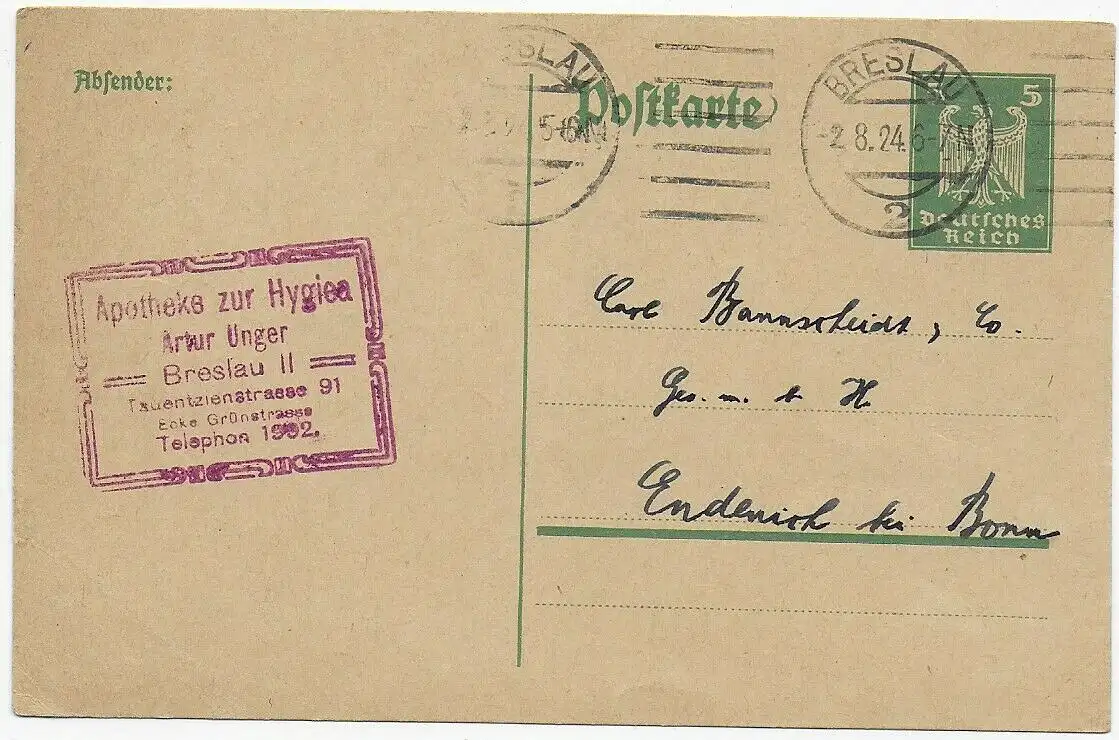 Absender:
Postkarte
BRESLAU
5-6N
BRESLAU
-2.8.24.6-7N
2
5
Deutsches
Reich
Apotheke zur Hygiea
Artur Unger
Breslau II
Tauentzienstrasse 91
Ecke Grünstrasse
Telephon 1992.
Carl Bannscheidt, Co.
Ges. m. b H
Endenich bei Bonn